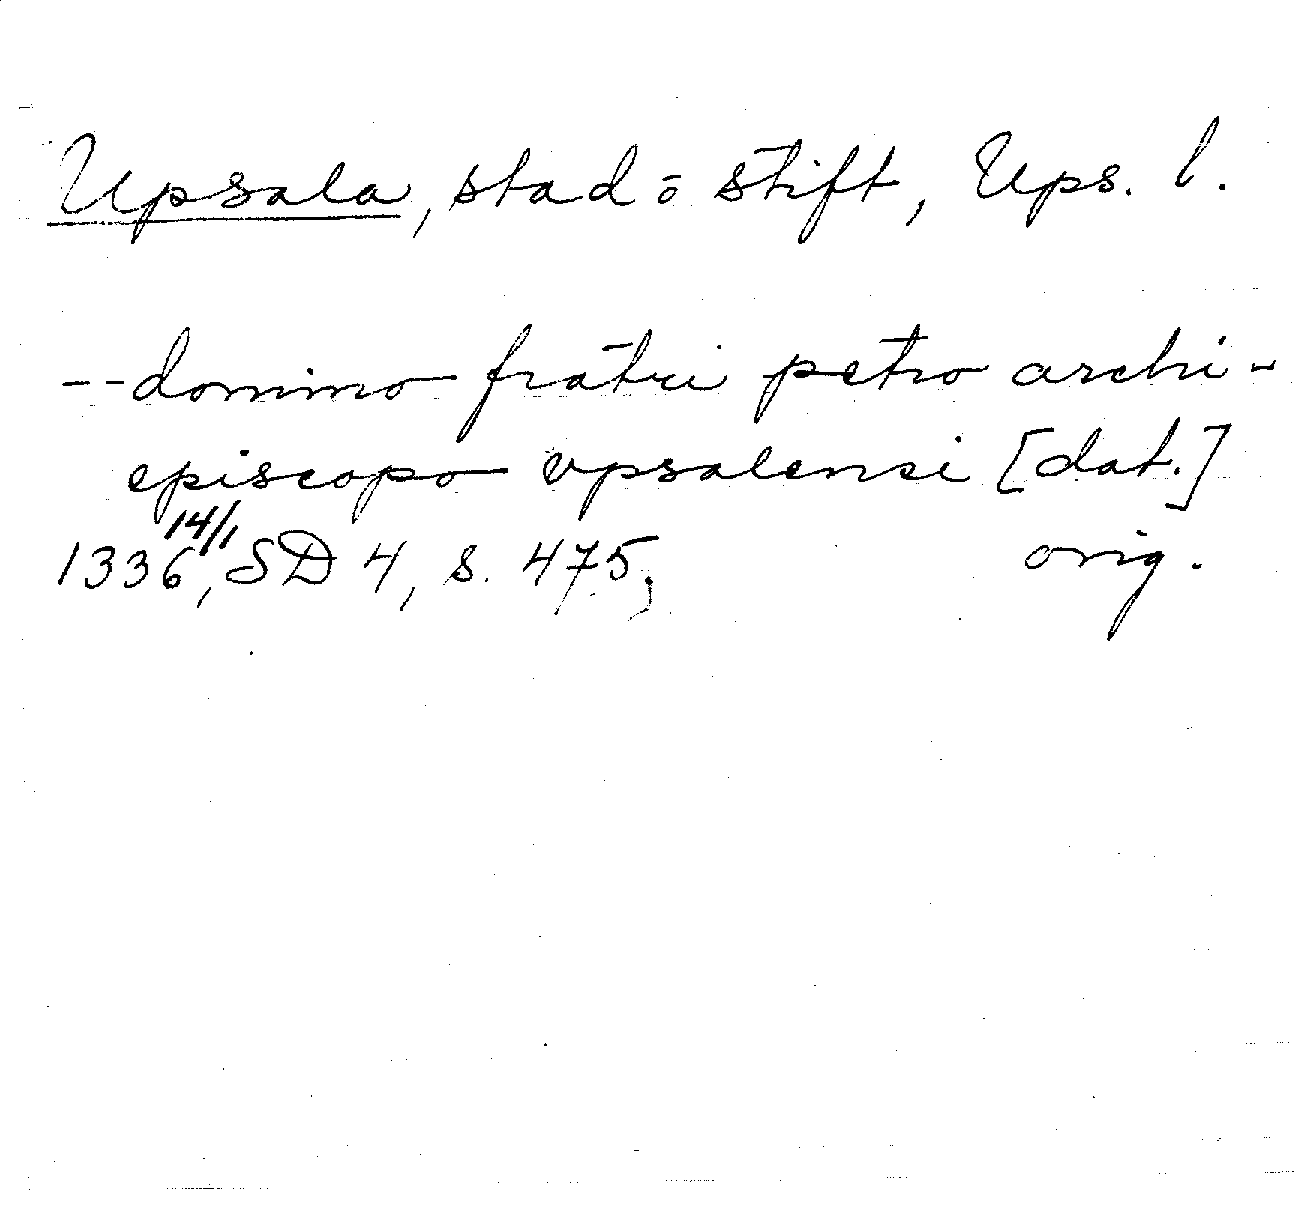 Upsala, stad o stift, Ups. l.
--domino fratri petro archi-
episcopo vpsalensi [dat.]
1336 14/1, SD 4, s. 475; orig.